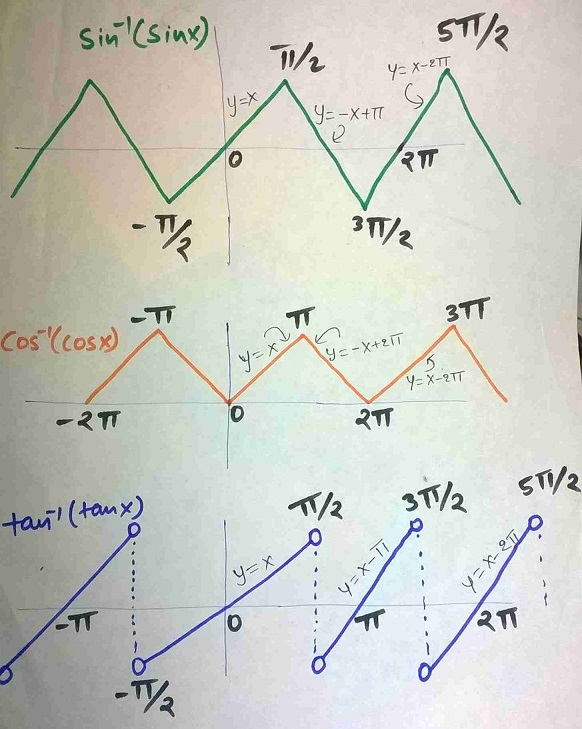 sin⁻¹(sinx)
π/2
5π/2
y=x
y=-x+π
y=x-2π
0
2π
-π/2
3π/2
cos⁻¹(cosx)
-π
π
3π
y=x
y=-x+2π
y=x-2π
-2π
0
2π
tan⁻¹(tanx)
π/2
3π/2
5π/2
y=x
y=x-π
y=x-2π
-π
0
π
2π
-π/2